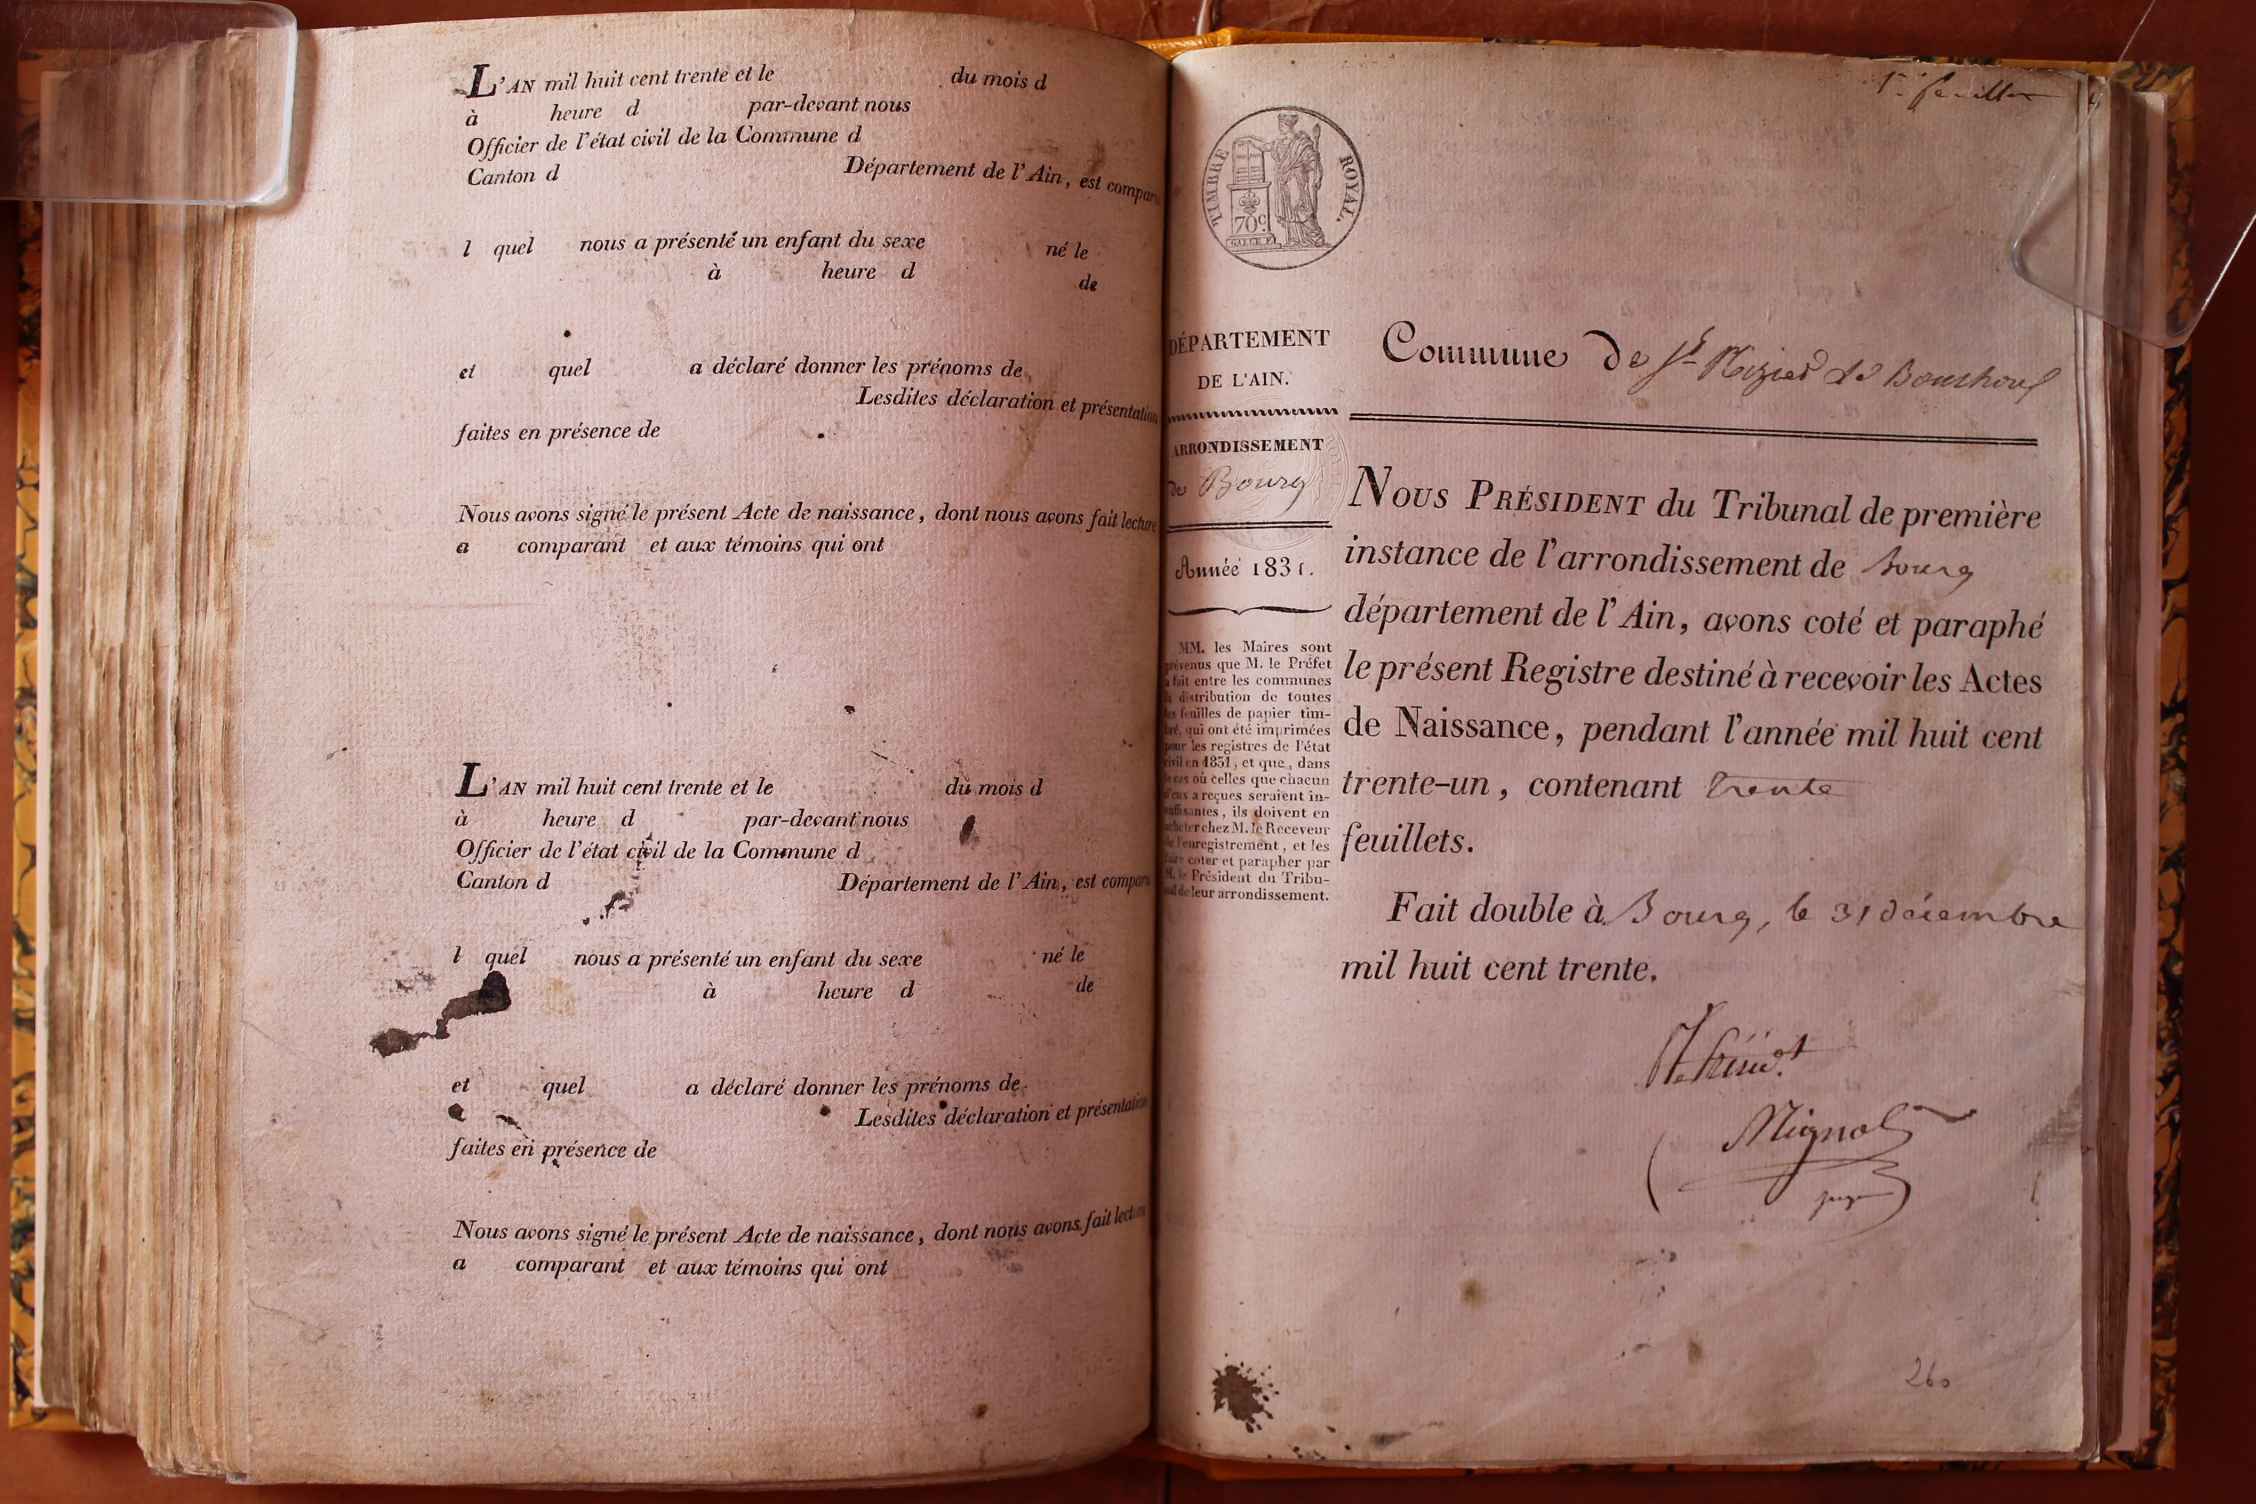 L'AN mil huit cent trente et le du mois d
à heure d par-devant nous
Officier de l'état civil de la Commune d
Canton d Département de l'Ain, est comparu
l quel nous a présenté un enfant du sexe né le
à heure d de
et quel a déclaré donner les prénoms de
Lesdites déclaration et présentation
faites en présence de
Nous avons signé le présent Acte de naissance, dont nous avons fait lecture
a comparant et aux témoins qui ont
L'AN mil huit cent trente et le du mois d
à heure d par-devant nous
Officier de l'état civil de la Commune d
Canton d Département de l'Ain, est comparu
l quel nous a présenté un enfant du sexe né le
à heure d de
et quel a déclaré donner les prénoms de
Lesdites déclaration et présentation
faites en présence de
Nous avons signé le présent Acte de naissance, dont nous avons fait lecture
a comparant et aux témoins qui ont
1er feuillet
TIMBRE ROYAL.
70c.
DÉPARTEMENT
DE L'AIN.
ARRONDISSEMENT
de Bourg
Année 1831.
MM. les Maires sont
prévenus que M. le Préfet
a fait entre les communes
la distribution de toutes
les feuilles de papier tim-
bré, qui ont été imprimées
pour les registres de l'état
civil en 1831, et que, dans
le cas où celles que chacun
d'eux a reçues seraient in-
suffisantes, ils doivent en
acheter chez M. le Receveur
de l'enregistrement, et les
faire coter et parapher par
M. le Président du Tribu-
nal de leur arrondissement.
Commune de St Nizier le Bouchoux
NOUS PRÉSIDENT du Tribunal de première
instance de l'arrondissement de Bourg
département de l'Ain, avons coté et paraphé
le présent Registre destiné à recevoir les Actes
de Naissance, pendant l'année mil huit cent
trente-un, contenant trente
feuillets.
Fait double à Bourg, le 31 décembre
mil huit cent trente.
Pr le Présidt
Mignot
juge
260